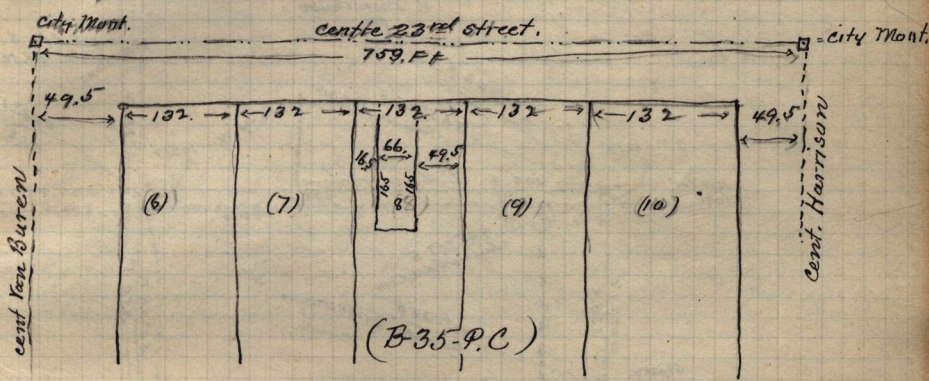 city Mont.
centre 23rd street.
= city Mont.
759. Ft
49.5
132.
132
132.
132
132
49.5
16.5
66.
49.5
165
165
8
(6)
(7)
(9)
(10)
cent Van Buren
cent. Harrison
(B-35-P.C)